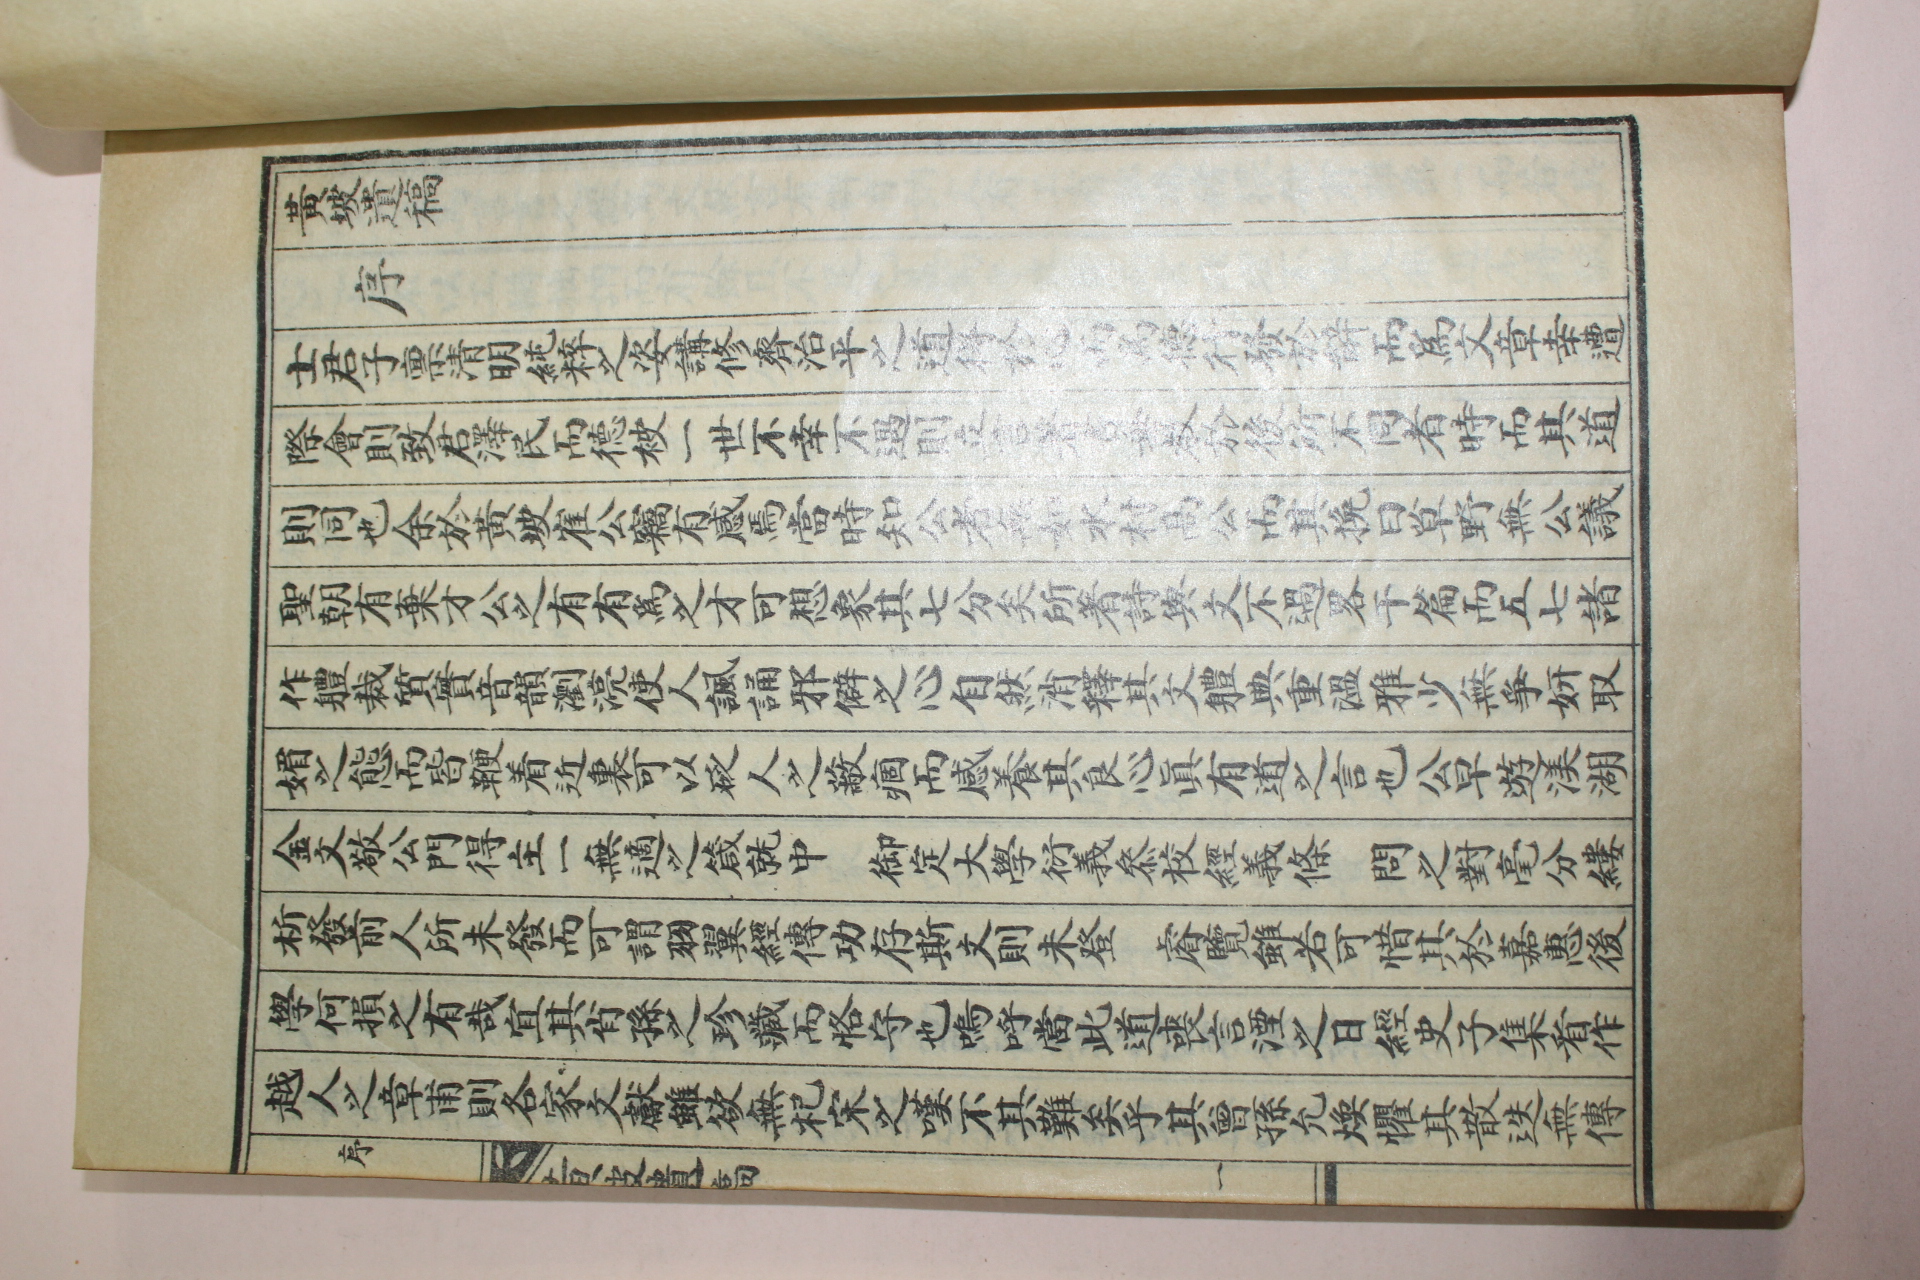 黃坡遺稿
序
士君子稟淸明純粹之姿講修齊治平之道 而爲文章幸遭
際會則致君澤民而德被一世不幸不遇則立言 後所不同者時而其道
則同也余於黃坡崔公竊有感焉當時知公者 公而其挽曰草野無公議
聖朝有棄才公之有有爲之才可想象其七分矣所著詩與文不過畧干篇而五七諸
作體裁質實音韻瀏亮使人諷誦邪僻之心自然消釋其文體典重溫雅少無爭姸取
媚之態而皆鞭着近裏可以砭人之蔽痼而感養其良心眞有道之言也公早遊渼湖
金文敬公門得主一無適之箴就中 御定大學衍義叅校經義條 問之對毫分縷
析發前人所未發而可謂羽翼經傳功存斯文則未登 睿覽雖若可惜其於嘉惠後
學何損之有哉宜其肖孫之珍藏而恪守也嗚呼當此道喪言湮之日經史子集看作
越人之章甫則名家文獻雖欲無杞宋之嘆不其難矣乎其曾孫允煥懼其散迭無傳
序 一